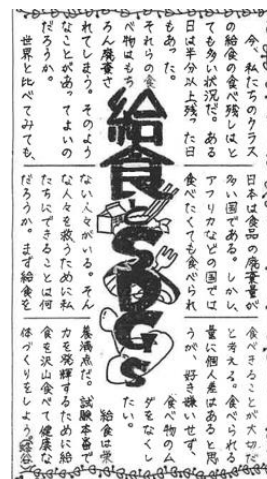 給食とSDGs
今、私たちのクラス
の給食の食べ残しはと
ても多い状況だ。ある
日は半分以上残った日
もあった。
それらの食
べ物はもち
ろん廃棄さ
れてしまう。そのよう
なことがあってよいの
だろうか。
世界と比べてみても、
日本は食品の廃棄量が
多い国である。しかし、
アフリカなどの国では
食べたくても食べられ
ない人々がいる。そん
な人々を救うために私
たちにできることは何
だろうか。まず給食を
食べきることが大切だ
と考える。食べられる
量に個人差はあると思
うが、好き嫌いせず、
食べ物のム
ダをなくし
たい。
給食は栄
養満点だ。試験本番で
力を発揮するために給
食を沢山食べて健康な
体づくりをしよう。